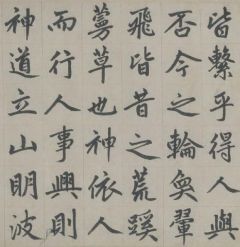 皆繫乎得人與
否今之輪奐翬
飛皆昔之荒蹊
蔓草也神依人
而行人事興則
神道立山明波